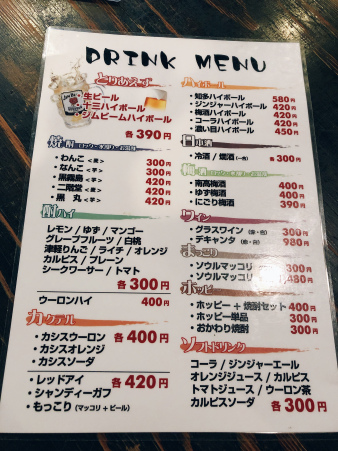 DRINK MENU
とりあえず
生ビール
十三ハイボール
ジムビームハイボール
各 390円
焼酎
・わんこ <麦> 300円
・なんこ <芋> 300円
・黒霧島 <芋> 420円
・二階堂 <麦> 420円
・黒 丸 <芋> 420円
酎ハイ
レモン / ゆず / マンゴー
グレープフルーツ / 白桃
津軽りんご / ライチ / オレンジ
カルピス / プレーン
シークワーサー / トマト
各 300円
・ウーロンハイ 400円
カクテル
・カシスウーロン
・カシスオレンジ
・カシスソーダ
各 400円
・レッドアイ
・シャンディーガフ
・もっこり (マッコリ + ビール)
各 420円
ハイボール
・知多ハイボール 580円
・ジンジャーハイボール 420円
・梅酒ハイボール 420円
・コーラハイボール 420円
・濃い目ハイボール 450円
日本酒
・冷酒 / 燗酒 各 300円
梅酒
・南高梅酒 400円
・ゆず梅酒 400円
・にごり梅酒 390円
ワイン
・グラスワイン (赤・白) 300円
・デキャンタ (赤・白) 980円
まっこり
・ソウルマッコリ 300円
・ソウルマッコリ 1,480円
ホッピー
・ホッピー + 焼酎セット 400円
・ホッピー単品 300円
・おかわり焼酎 300円
ソフトドリンク
コーラ / ジンジャーエール
オレンジジュース / カルピス
トマトジュース / ウーロン茶
カルピスソーダ 各 300円